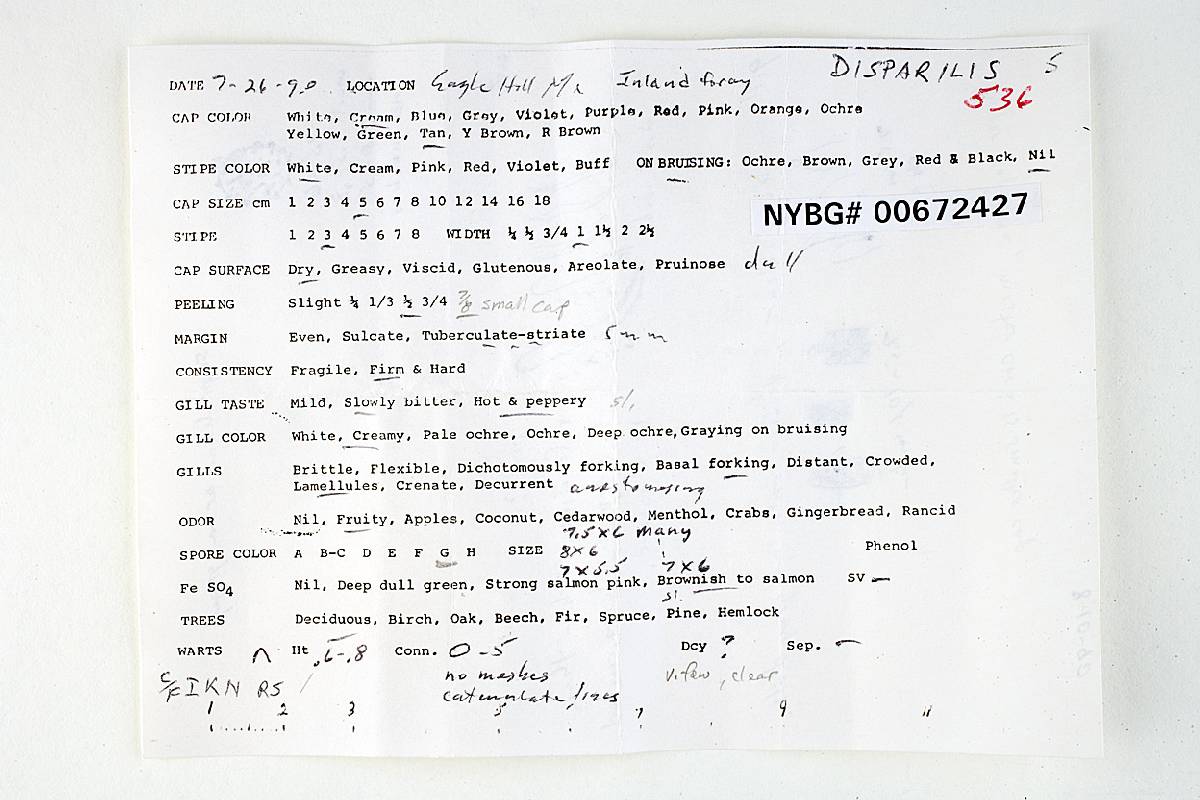 DISPARILIS 5
DATE 7-26-90 LOCATION Eagle Hill Me Inland foray
536
CAP COLOR White, Cream, Blue, Grey, Violet, Purple, Red, Pink, Orange, Ochre
Yellow, Green, Tan, Y Brown, R Brown
STIPE COLOR White, Cream, Pink, Red, Violet, Buff ON BRUISING: Ochre, Brown, Grey, Red & Black, Nil
CAP SIZE cm 1 2 3 4 5 6 7 8 10 12 14 16 18
NYBG# 00672427
STIPE 1 2 3 4 5 6 7 8 WIDTH ¼ ½ 3/4 1 1½ 2 2½
CAP SURFACE Dry, Greasy, Viscid, Glutenous, Areolate, Pruinose dull
PEELING Slight ¼ 1/3 ½ 3/4 7/8 small cap
MARGIN Even, Sulcate, Tuberculate-striate 5mm
CONSISTENCY Fragile, Firm & Hard
GILL TASTE Mild, Slowly bitter, Hot & peppery sl.
GILL COLOR White, Creamy, Pale ochre, Ochre, Deep ochre, Graying on bruising
GILLS Brittle, Flexible, Dichotomously forking, Basal forking, Distant, Crowded,
Lamellules, Crenate, Decurrent anastomosing
ODOR Nil, Fruity, Apples, Coconut, Cedarwood, Menthol, Crabs, Gingerbread, Rancid
7.5×6 many
SPORE COLOR A B-C D E F G H SIZE 8×6 Phenol
7×5.5 7×6
Fe SO4 Nil, Deep dull green, Strong salmon pink, Brownish to salmon SV -
sl.
TREES Deciduous, Birch, Oak, Beech, Fir, Spruce, Pine, Hemlock
WARTS Ht .6-.8 Conn. 0-5 Dcy ? Sep. -
no meshes v. few, clear
c/f IKN RS catenulate lines
1 2 3 5 7 9 11